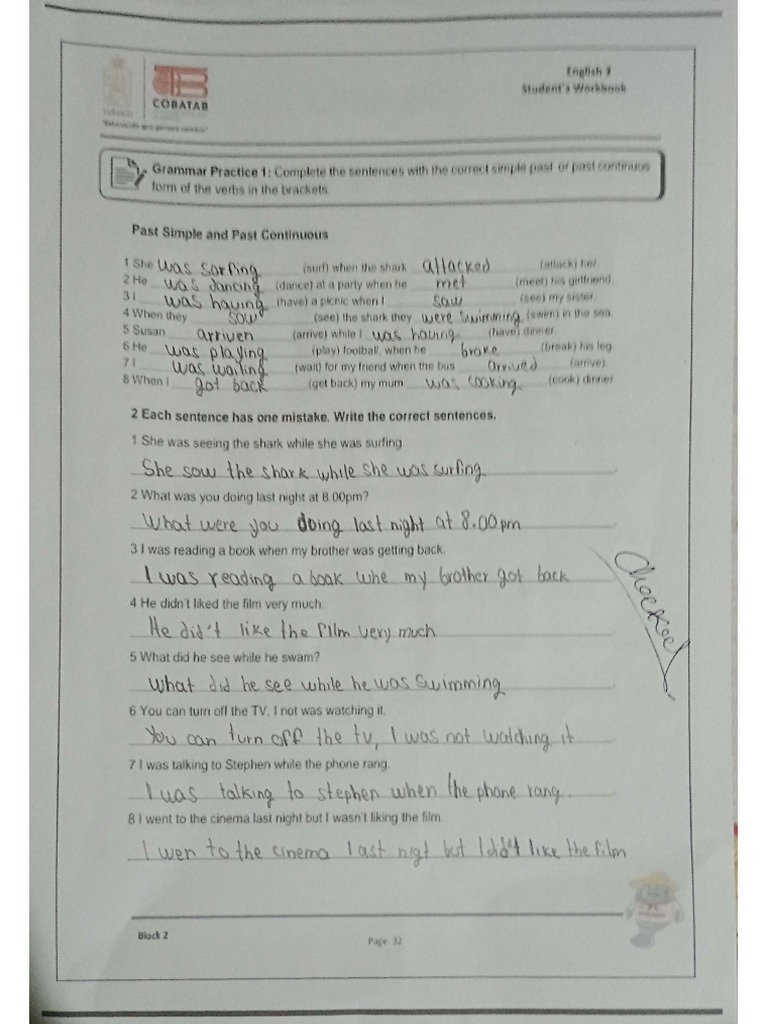 English 3
Student's Workbook
COBATAB
Grammar Practice 1: Complete the sentences with the correct simple past or past continuos
form of the verbs in the brackets.
Past Simple and Past Continuous
1 She was sorfing (surf) when the shark attacked (attack) her.
2 He was dancing (dance) at a party when he met (meet) his girlfriend.
3 I was having (have) a picnic when I saw (see) my sister.
4 When they sow (see) the shark they were swimming (swim) in the sea.
5 Susan arriven (arrive) while I was having (have) dinner.
6 He was playing (play) football, when he broke (break) his leg.
7 I was waiting (wait) for my friend when the bus arrived (arrive).
8 When I got back (get back) my mum was cooking (cook) dinner
2 Each sentence has one mistake. Write the correct sentences.
1 She was seeing the shark while she was surfing.
She sow the shark while she was surfing
2 What was you doing last night at 8.00pm?
What were you doing last night at 8.00pm
3 I was reading a book when my brother was getting back.
I was reading a book whe my brother got back
Checked
4 He didn't liked the film very much.
He did't like the film very much
5 What did he see while he swam?
What did he see while he was swimming
6 You can turn off the TV, I not was watching it.
You can turn off the tv, I was not watching it
7 I was talking to Stephen while the phone rang.
I was talking to stephen when the phone rang.
8 I went to the cinema last night but I wasn't liking the film.
I wen to the cinema last nigt but I did't like the film
Block 2
Page 32